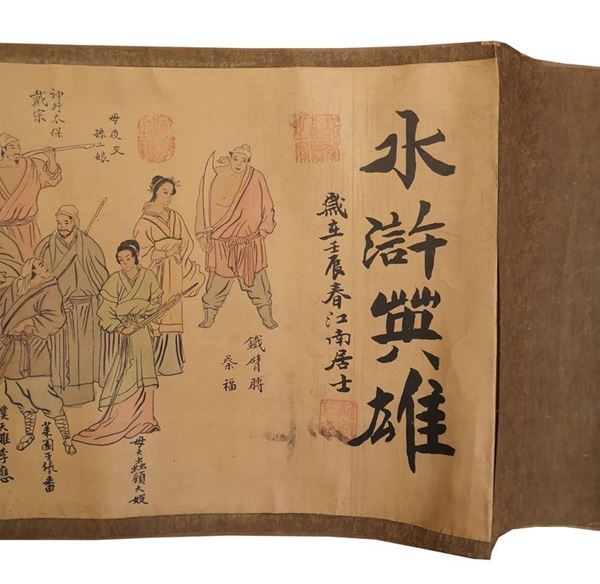 水滸英雄
歲在壬辰春江南居士
鐵臂膊
蔡福
母夜叉
孫二娘
母大蟲顧大嫂
神行太保
戴宗
菜園子張青
撲天雕李應